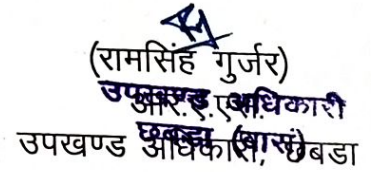 (रामसिंह गुर्जर)
आर.ए.एस.
उपखण्ड अधिकारी
उपखण्ड अधिकारी, छबडा
छबडा (बारां)